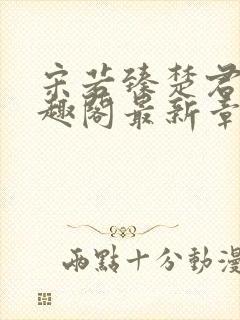 宋若臻楚君
趣阁最新章
兩點十分動漫